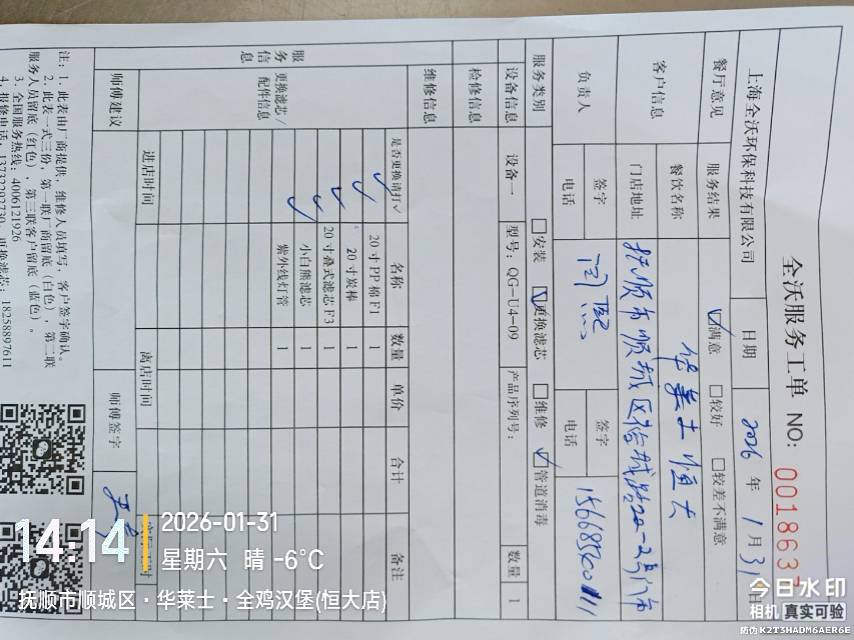 全沃服务工单 NO: 001863
上海全沃环保科技有限公司 日期 2026 年 1 月 31 日
餐厅意见 服务结果 ☑满意 □较好 □较差不满意
客户信息 餐饮名称 华莱士恒大
门店地址 抚顺市顺城区
负责人 签字 签字
电话 电话 15668500111
服务类别 □安装 ☑更换滤芯 □维修 ☑管道消毒
设备信息 设备一 型号: QG-U4-09 产品序列号: 数量 1
检修信息
维修信息
服务信息
更换滤芯/配件信息
是否更换请打✓ 名称 数量 单价 合计 备注
✓ 20寸PP棉F1 1
✓ 20寸炭棒 1
✓ 20寸叠式滤芯F3 1
✓ 小白熊滤芯 1
紫外线灯管 1
进店时间 离店时间
师傅建议 师傅签字
注: 1. 此表由厂商提供, 维修人员填写, 客户签字确认。
2. 此表一式三份, 第一联厂商留底 (白色), 第二联
服务人员留底 (红色), 第三联客户留底 (蓝色)。
3. 全国服务热线: 4006121926
4. 报修电话: 13732202730 更换滤芯: 18258897611
14:14
2026-01-31
星期六 晴 -6℃
抚顺市顺城区·华莱士·全鸡汉堡(恒大店)
今日水印
相机 真实可验
防伪 K2T3HADM6AER6E